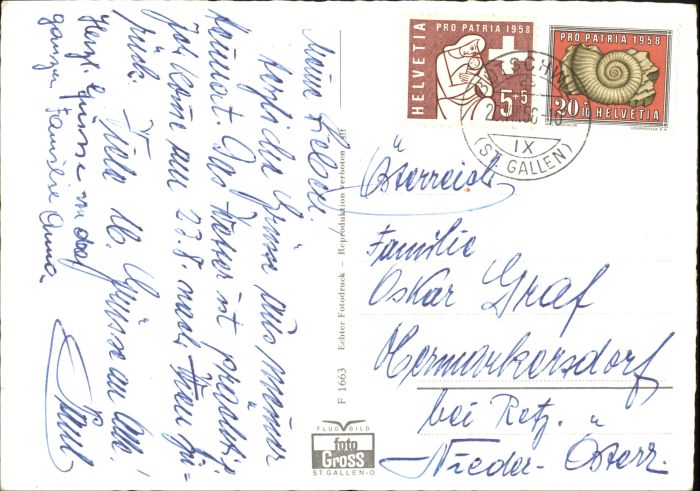 Meine Lieben!
Herzliche Grüsse aus meiner
Heimat. Das Wetter ist prächtig.
Ich komme am 23.8. nach Wien zu=
rück. Viele lb. Grüsse an alle!
Herzl. Grüsse von der
ganzen Familie Anna
HELVETIA
PRO PATRIA 1958
5+5
PRO PATRIA 1958
20+10
HELVETIA
IX
(ST. GALLEN)
Österreich
Familie
Oskar Graf
Hermarkersdorf
bei Retz.
Nieder-Österr.
F 1663 Echter Fotodruck - Reproduktion verboten
FLUGBILD
foto
Gross
ST. GALLEN-O